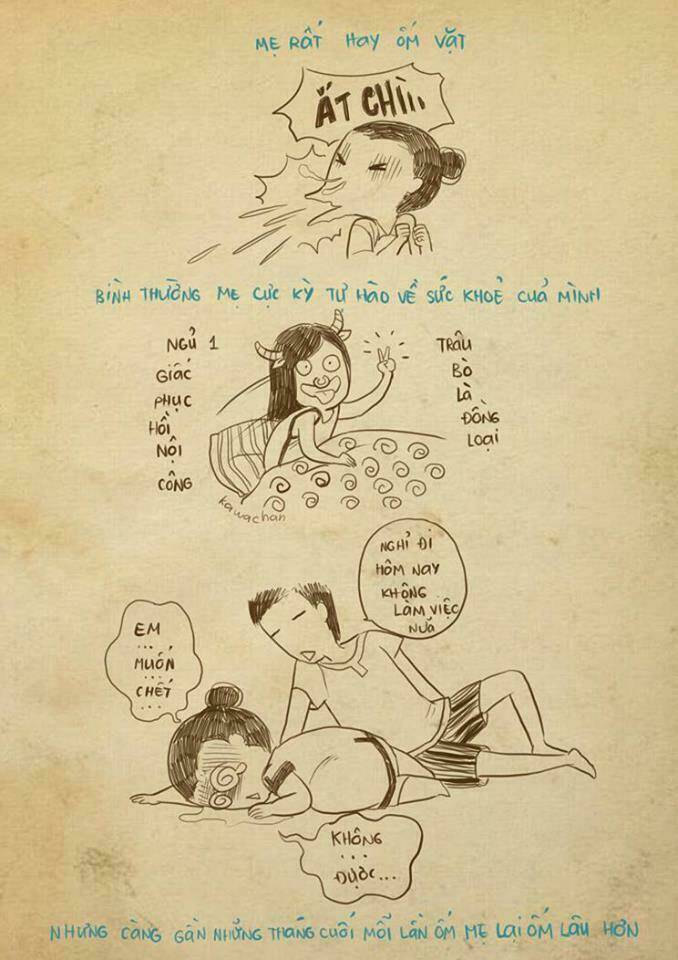 MẸ RẤT HAY ỐM VẶT
ẮT CHÌ...
BÌNH THƯỜNG MẸ CỰC KỲ TỰ HÀO VỀ SỨC KHOẺ CUẢ MÌNH
NGỦ 1
GIẤC
PHỤC
HỒI
NỘI
CÔNG
TRÂU
BÒ
LÀ
ĐỒNG
LOẠI
kawachan
NGHỈ ĐI
HÔM NAY
KHÔNG
LÀM VIỆC
NƯÃ
EM
...
MUỐN
...
CHẾT
...
KHÔNG
...
ĐƯỢC...
NHƯNG CÀNG GẦN NHỮNG THÁNG CUỐI MỖI LẦN ỐM MẸ LẠI ỐM LÂU HƠN